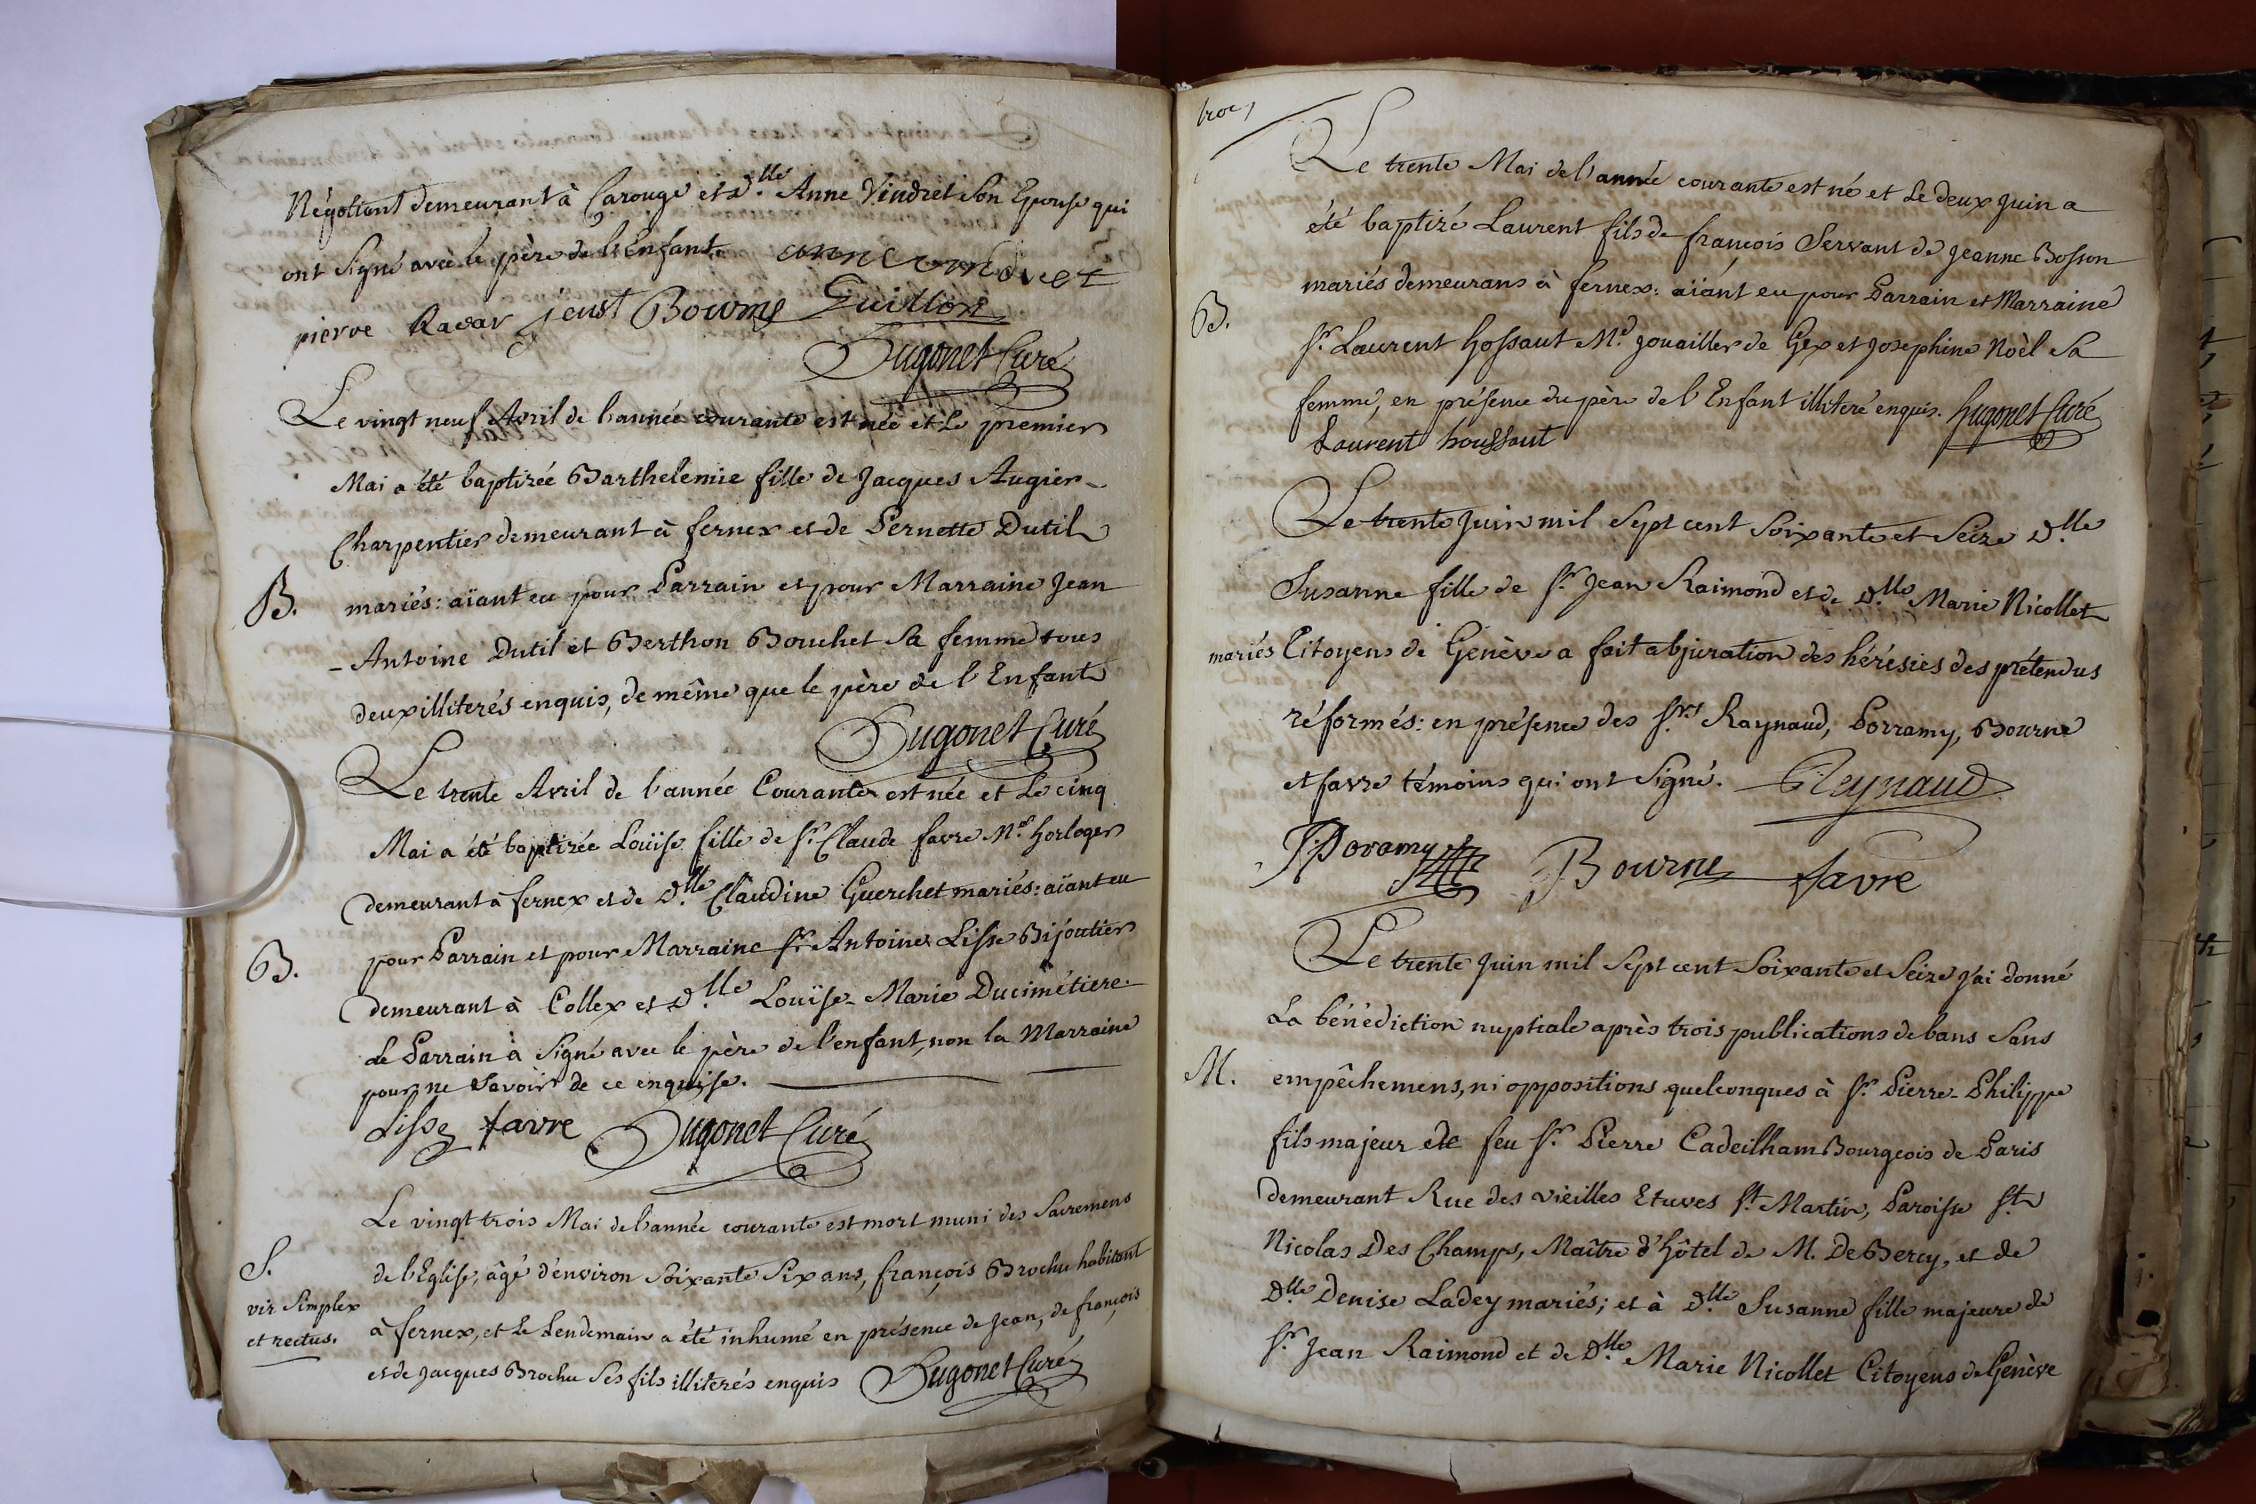 Négotiant demeurant à Carouge et D.lle Anne Vindret Son Epouse qui
ont Signé avec le père de l'Enfant. anne vindret
pierre Ravar Bourne Guillon
Hugonet Curé
Le vingt neuf Avril de l'année courante est née et Le premier
Mai a été baptizée Barthelemie fille de Jacques Augier
Charpentier demeurant à fernex et de Pernette Dutil
B.
mariés: aïant eu pour Parrain et pour Marraine Jean
- Antoine Dutil et Berthon Bouchet Sa femme tous
deux illiterés enquis, de même que le père de l'Enfant
Hugonet Curé
Le trente Avril de l'année Courante est née et Le cinq
Mai a été baptizée Louïse fille de Sr. Claude favre Md. horloger
demeurant à fernex et de D.lle Claudine Guerchet mariés: aïant eu
B.
pour Parrain et pour Marraine Sr. Antoine Lisse Bijoutier
demeurant à Collex et D.lle Louïse-Marie Ducimétiere.
Le Parrain à Signé avec le père de l'enfant, non la Marraine
pour ne Savoir de ce enquise.
Lisse favre Hugonet Curé
Le vingt trois Mai de l'année courante est mort muni des Sacremens
S.
vir Simplex
et rectus.
de l'Eglise, âgé d'environ Soixante Six ans, françois Brochu habitant
à fernex, et Le Lendemain a été inhumé en présence de Jean, de françois
et de Jacques Brochu Ses fils illiterés enquis Hugonet Curé
Le trente Mai de l'année courante est né et Le deux Juin a
été baptizé Laurent fils de françois Servant de Jeanne Bosson
mariés demeurans à fernex: aïant eu pour Parrain et Marraine
B.
Sr. Laurent hossaut Md. Jouailler de Gex et Josephine Noèl Sa
femme, en présence du père de l'Enfant illiteré enquis. hugonet Curé
Laurent houssaut
Le trente Juin mil Sept cent Soixante et Seize D.lle
Susanne fille de Sr. Jean Raimond et de D.lle Marie Nicollet
mariés Citoyens de Genève a fait abjuration des hérésies des prétendus
réformés: en présence des Srs Raynaud, Porramy, Bourne
et favre témoins qui ont Signé. Reynaud
Poramy Bourne favre
Le trente Juin mil Sept cent Soixante et Seize j'ai donné
La bénédiction nuptiale après trois publications de bans Sans
M.
empêchemens, ni oppositions quelconques à Sr. Pierre-Philippe
fils majeur de feu Sr. Pierre Cadeilham Bourgeois de Paris
demeurant Rue des vieilles Etuves St. Martin, Paroisse St.
Nicolas Des Champs, Maître d'hôtel de M. De Bercy, et de
D.lle Denise Ladey mariés; et à D.lle Susanne fille majeure de
Sr. Jean Raimond et de D.lle Marie Nicollet Citoyens de Genève